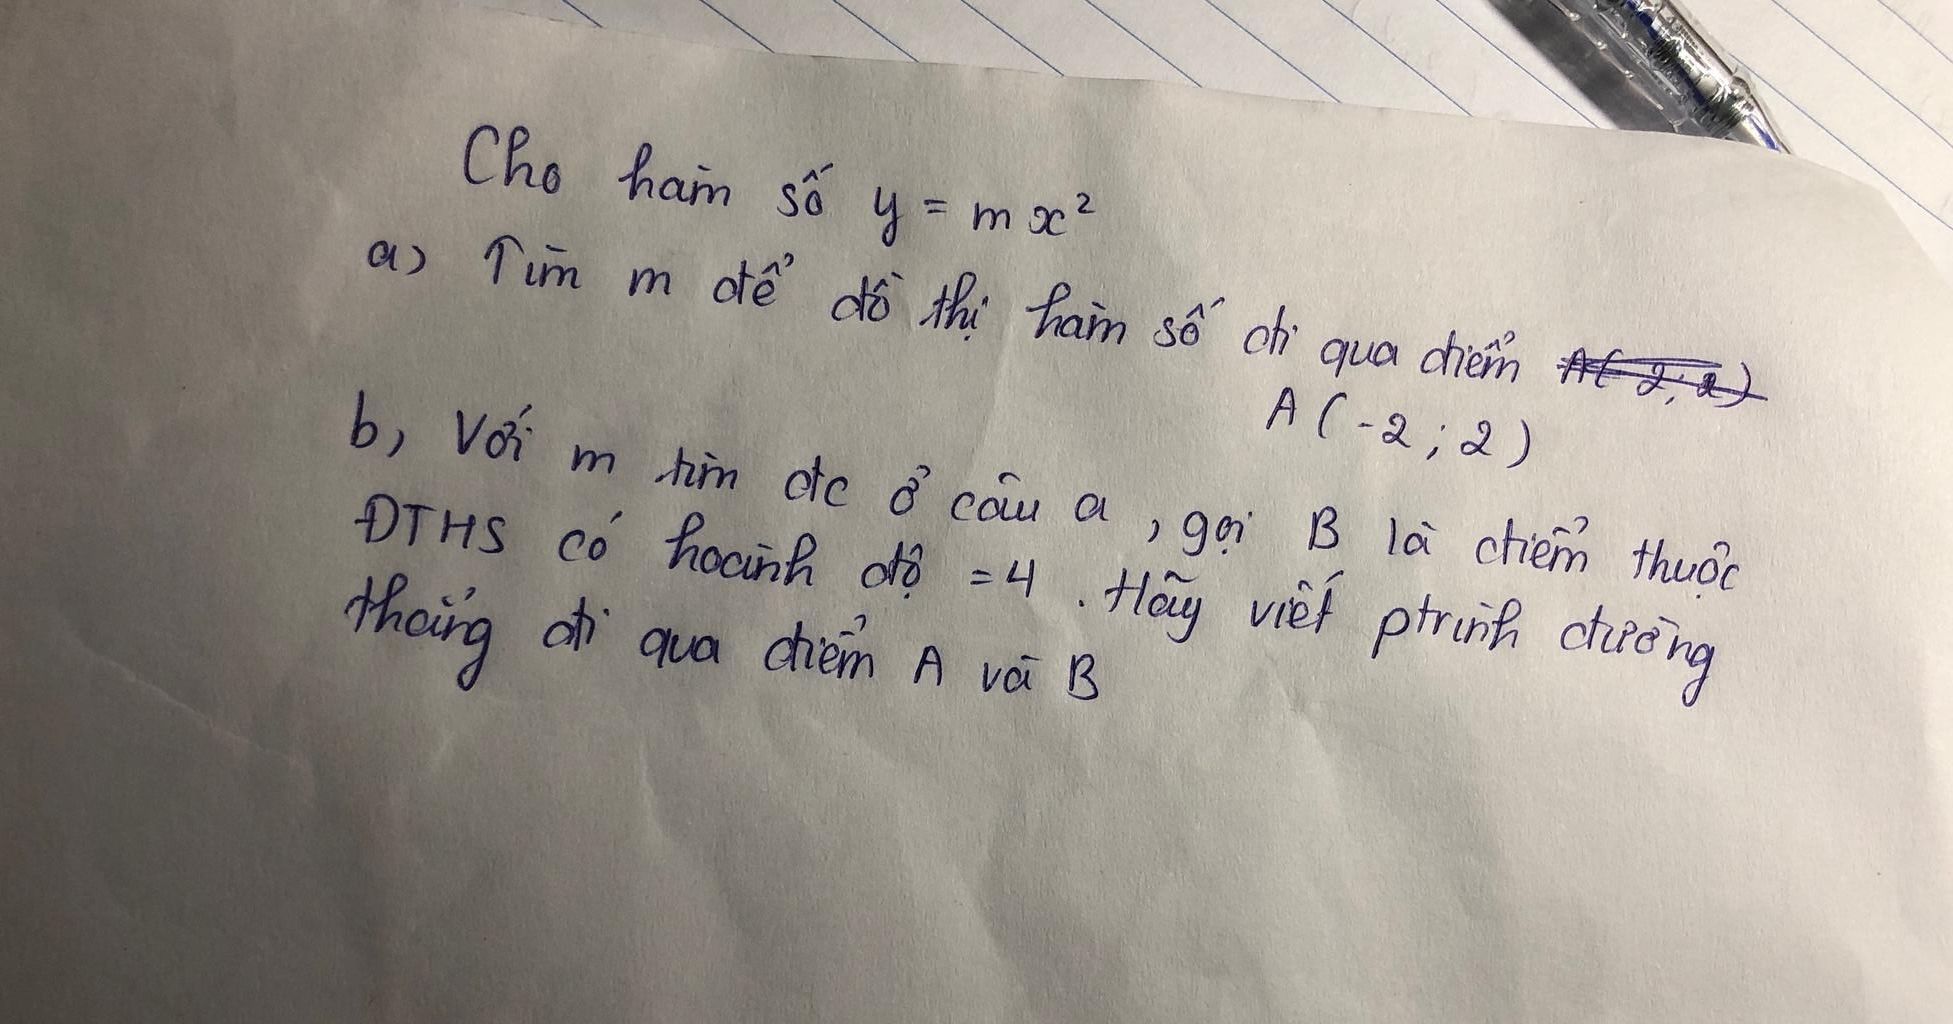 Cho hàm số y = mx²
a) Tìm m để đồ thị hàm số đi qua điểm A(2;2)
A(-2;2)
b, Với m tìm đc ở câu a, gọi B là điểm thuộc
ĐTHS có hoành độ =4. Hãy viết ptrình đường
thẳng đi qua điểm A và B